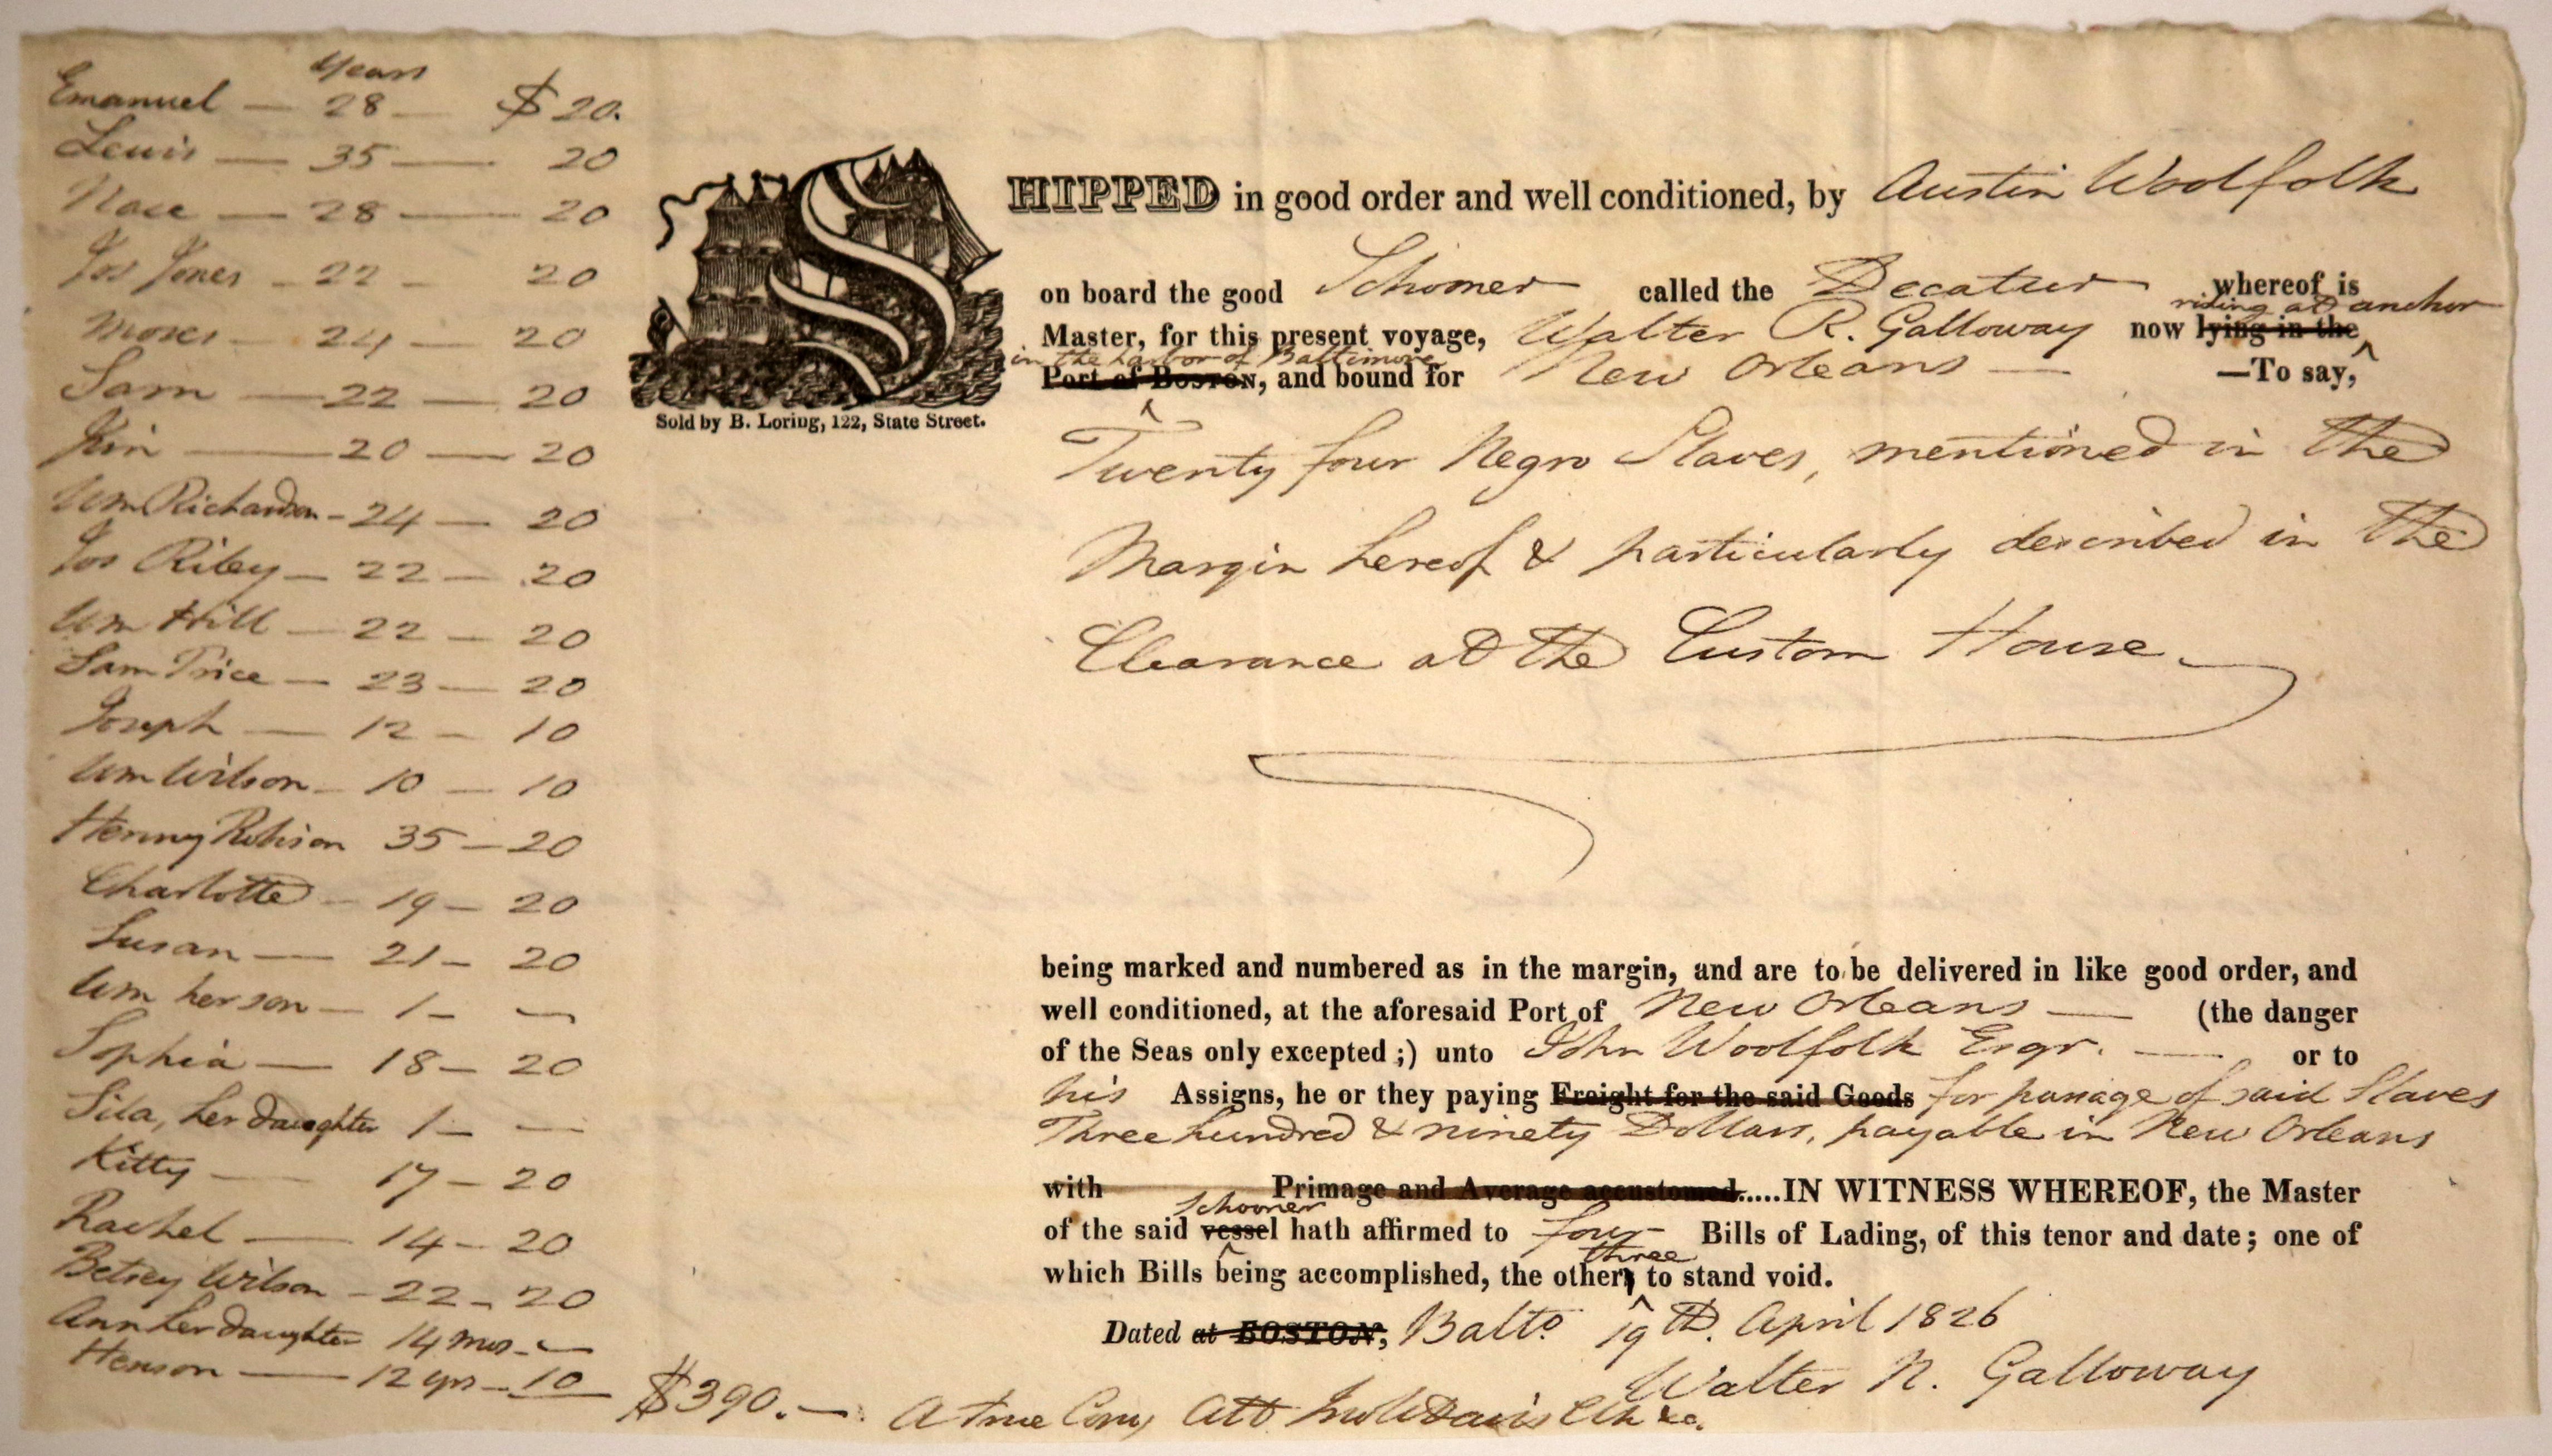 Years
Emanuel — 28 — $ 20.
Lewis — 35 — 20
Nace — 28 — 20
Jos Jones — 22 — 20
Moses — 24 — 20
Sam — 22 — 20
Jim — 20 — 20
Wm Richardson - 24 — 20
Jos Riley — 22 — 20
Wm Hill — 22 — 20
Sam Price — 23 — 20
Joseph — 12 — 10
Wm Wilson — 10 — 10
Henny Robison 35 — 20
Charlotte — 19 — 20
Susan — 21 — 20
Wm her son — 1 — —
Sophia — 18 — 20
Sila, her daughter 1 — —
Kitty — 17 — 20
Rachel — 14 — 20
Betsey Wilson — 22 — 20
Ann her daughter 14 mos. —
Henson — 12 yrs — 10
$390. —
Sold by B. Loring, 122, State Street.
SHIPPED in good order and well conditioned, by Austin Woolfolk
on board the good Schooner called the Decatur whereof is
riding at anchor
Master, for this present voyage, Walter R. Galloway now lying in the
in the harbor of Baltimore
Port of BOSTON, and bound for New Orleans — —To say,
Twenty four Negro Slaves, mentioned in the
Margin hereof & particularly described in the
Clearance at the Custom House
being marked and numbered as in the margin, and are to be delivered in like good order, and
well conditioned, at the aforesaid Port of New Orleans — (the danger
of the Seas only excepted ;) unto John Woolfolk Esqr. — or to
his Assigns, he or they paying Freight for the said Goods for passage of said Slaves
Three hundred & ninety Dollars, payable in New Orleans
with Primage and Average accustomed.....IN WITNESS WHEREOF, the Master
schooner
of the said vessel hath affirmed to four Bills of Lading, of this tenor and date; one of
three
which Bills being accomplished, the other to stand void.
Dated at BOSTON, Balto 19th. April 1826
Walter N. Galloway
A true Copy Att Davis Clk &c.